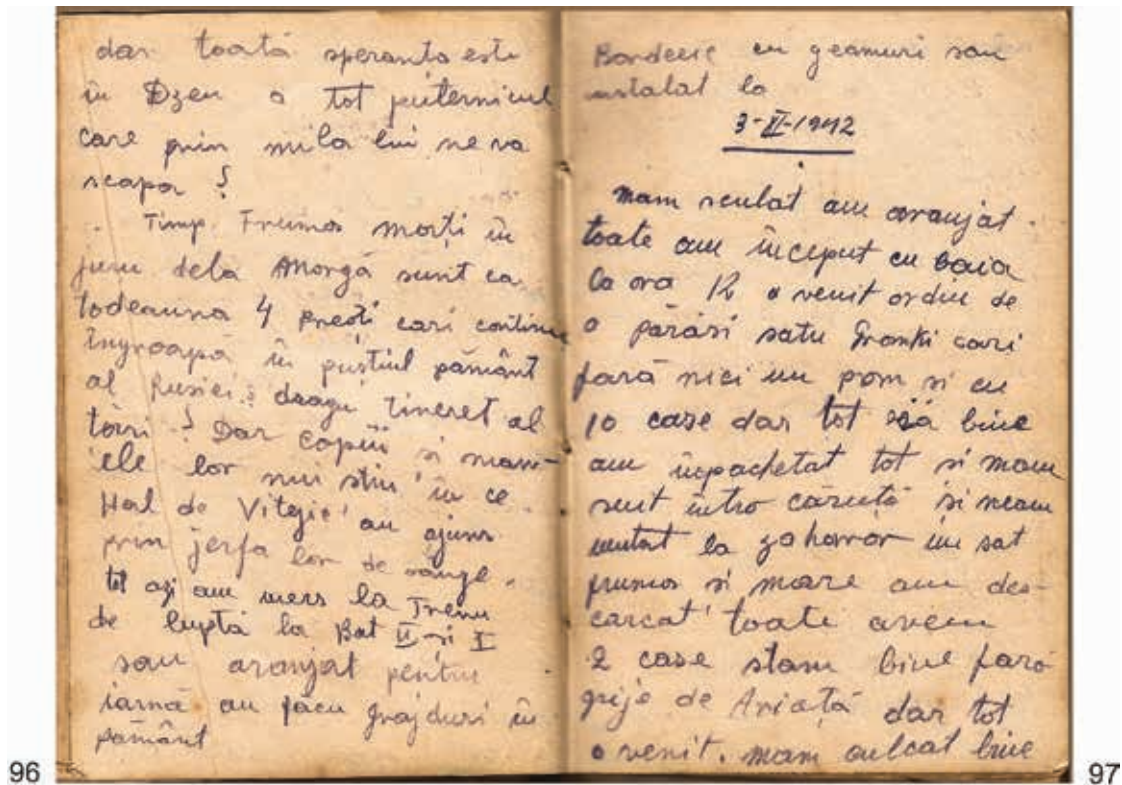 dar toată speranța este
în Dzeu a tot puternicul
care prin mila lui ne va
scapa ?
Timp. Frumos morți în
juru dela Morgă sunt ca
todeauna 4 preoți cari continu
îngroapă în pustiul pământ
al Rusiei : dragu tineret al
tării ? Dar copiii si mam-
ele lor nui stiu in ce
Hal de Vitejie au ajuns
prin jerfa lor de sânge.
tot azi am mers la Trenu
de luptă la Bat II si I
sau aranjat pentru
iarnă au facu grajduri în
pământ
96
Bordeeie cu geamuri sau
instalat la
3-II-1942
mam sculat am aranjat
toate am început cu baia
la ora 12 a venit ordin de
a părăsi satu Gronki cari
fară nici un pom si cu
10 case dar tot bine
am inpachetat tot si mam
într'o căruță si neam
mutat la un sat
frumos si mare am des-
carcat toate avem
2 case stam bine fară
grije de Aviată dar tot
a venit. mam culcat bine
97